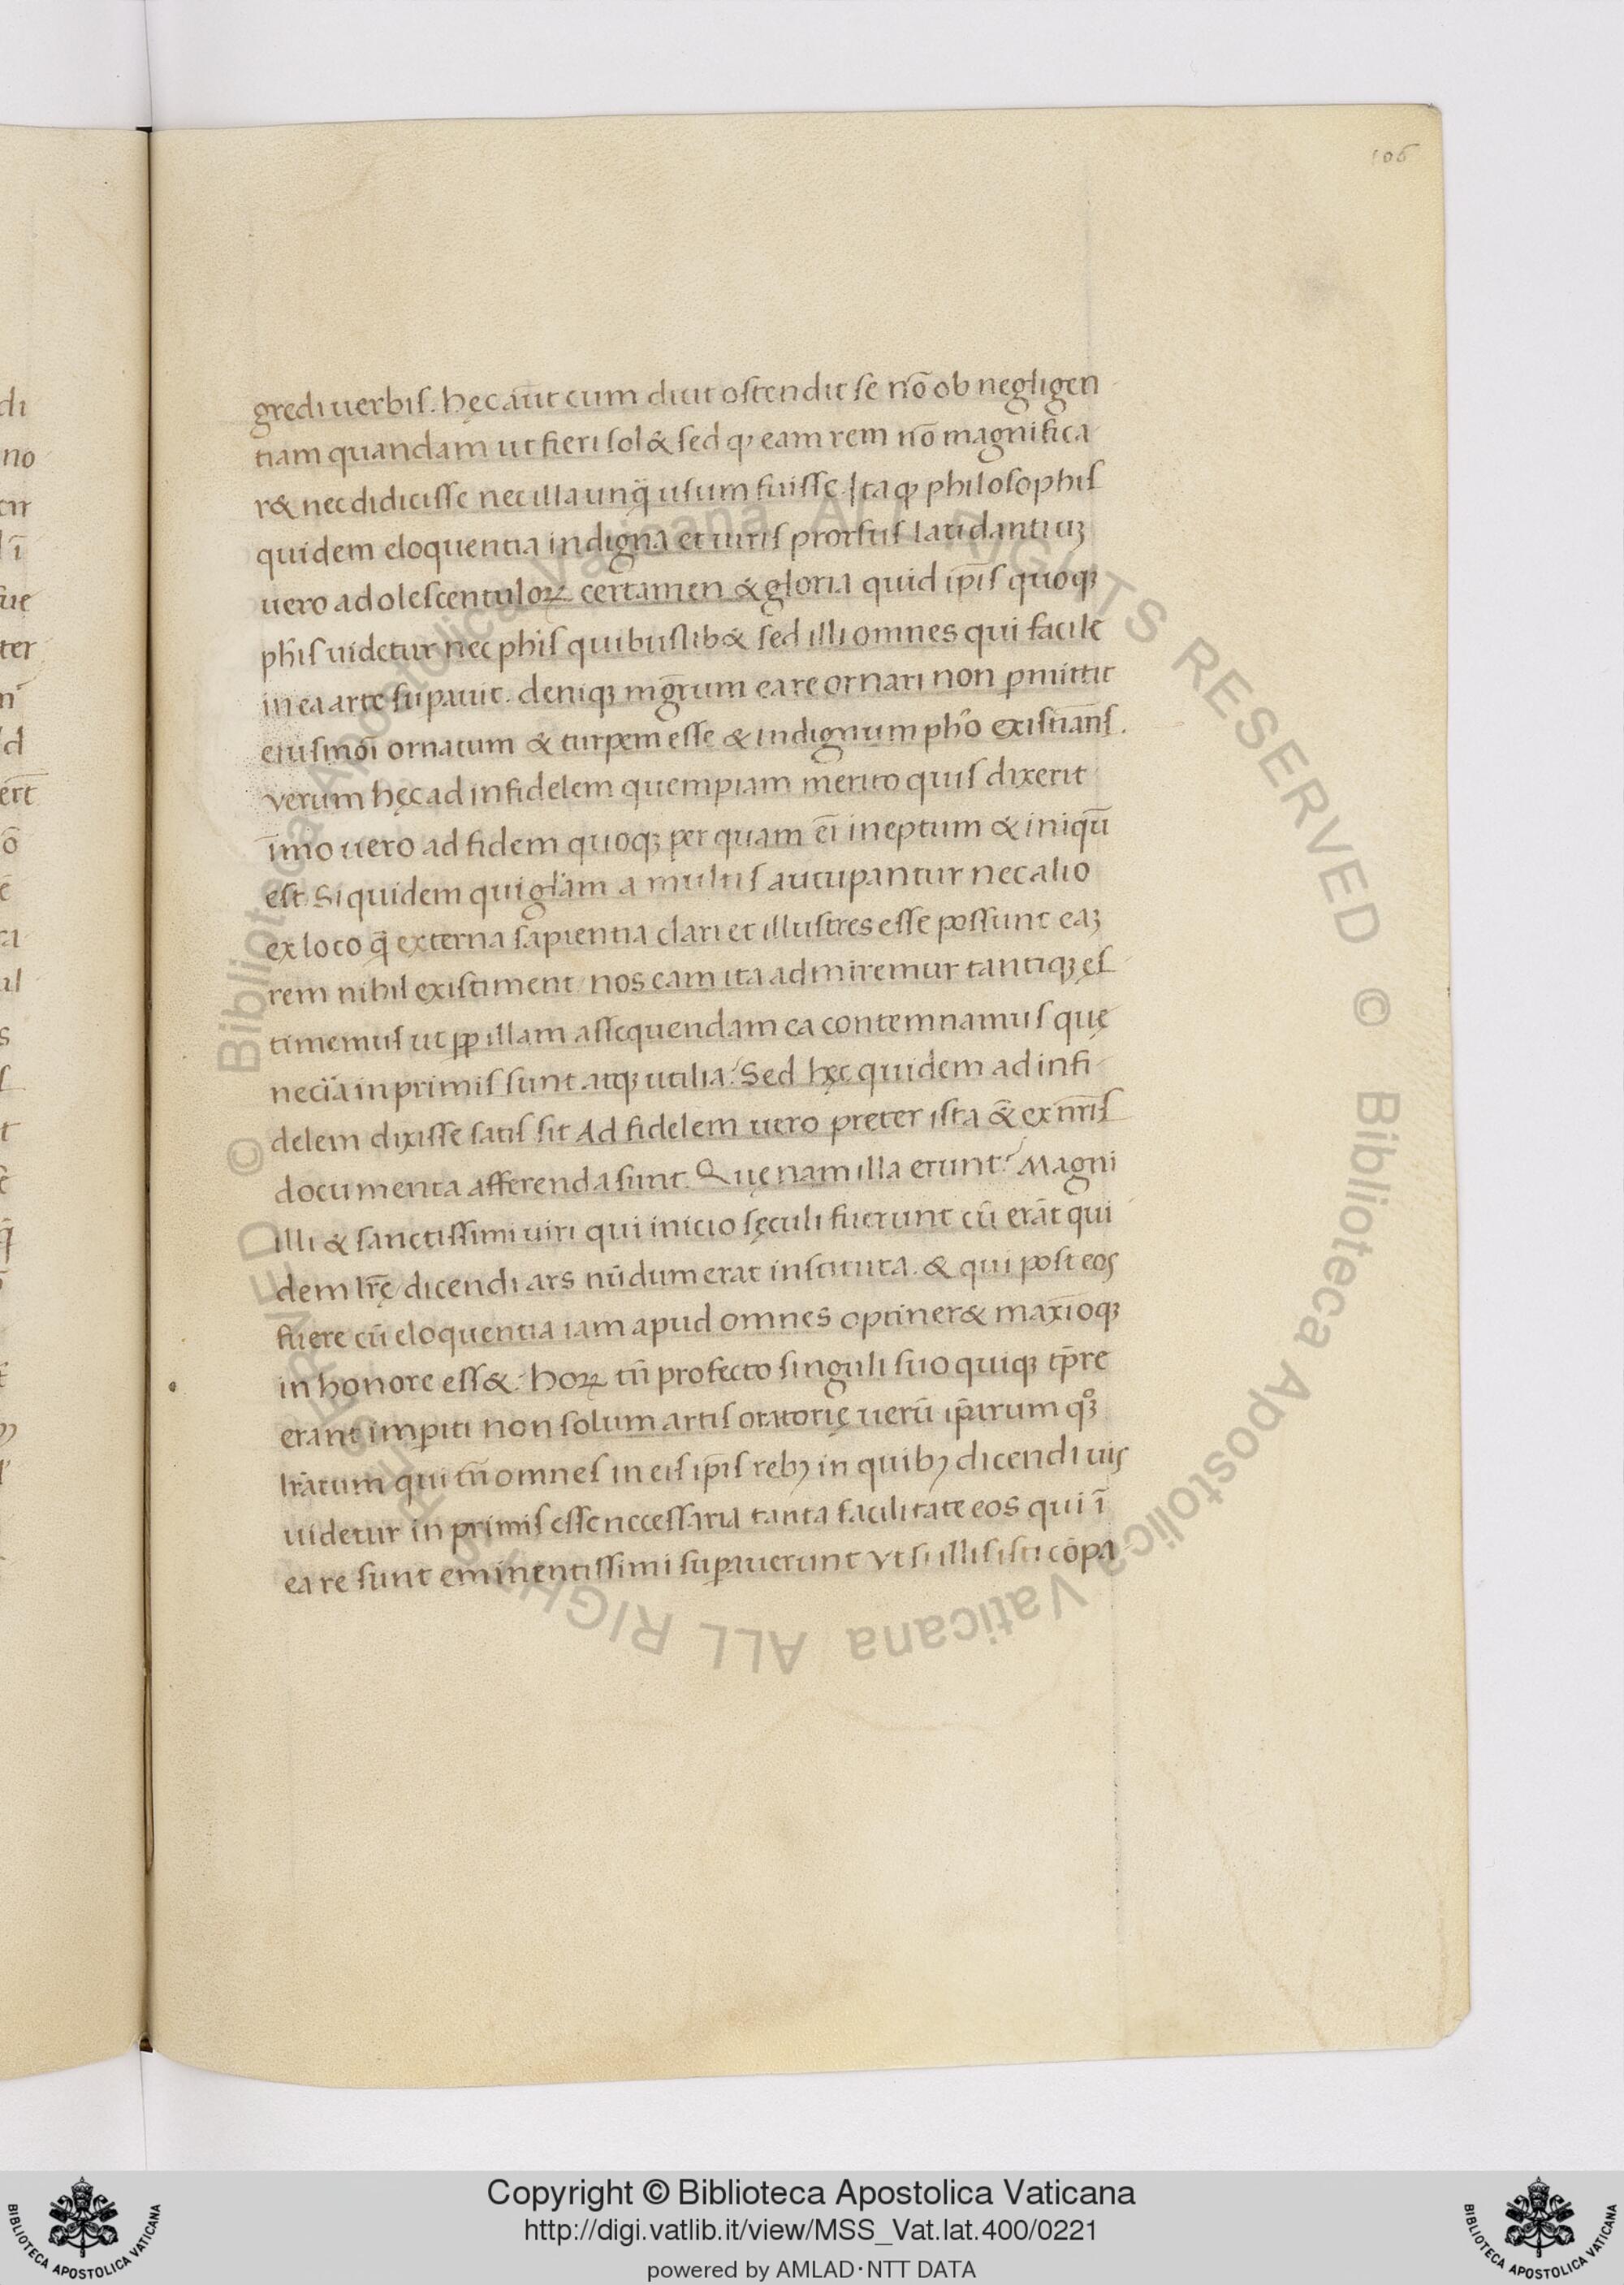 106
di
no
ter
gredi uerbis. hęc aūt cum dicit ostendit se nō ob negligen
tiam quandam ut fieri sol& sed q eam rem nō magnifica
r& nec didicisse nec illa unq̄ usum fuisse. Itaq philosophis
quidem eloquentia indigna et uiris prorsus laudantiuꝫ
uero adolescentuloꝝ certamen & gloria quid ip̄is quoqꝫ
phīs uidetur nec phīs quibuslib& sed illi omnes qui facile
in ea arte supauit. deniqꝫ mgr̄um ea re ornari non ꝑmittit
eiusmōi ornatum & turpem esse & indignum phō existiāns.
verum hęc ad infidelem quempiam merito quis dixerit
īmo uero ad fidem quoqꝫ per quam eī ineptum & iniqū
est Siquidem qui gl̄am a multis aucupantur nec alio
ex loco q̄ externa sapientia clari et illustres esse possunt eaꝫ
rem nihil existiment nos eam ita admiremur tantiqꝫ es
timemus ut ꝓp illam assequendam ea contemnamus quę
neciā inprimis sunt atqꝫ utilia? Sed hęc quidem ad infi
delem dixisse satis sit Ad fidelem uero preter ista &̄ ex nr̄is
documenta afferenda sunt. Quęnam illa erunt? Magni
illi & sanctissimi uiri qui inicio sęculi fuerunt cū erāt qui
dem lr̄ę dicendi ars nūdum erat instituta. & qui post eos
fuere cū eloquentia iam apud omnes optiner& maxīoqꝫ
in honore ess&. hoꝝ tn̄ profecto singuli suo quiqꝫ tp̄re
erant imꝑiti non solum artis oratorię uerū ip̄arum qꝫ
lr̄atum qui tn̄ omnes in eis ip̄is rebꝫ in quibꝫ dicendi uis
uidetur in primis esse necessaria tanta facilitate eos qui ī
ea re sunt eminentissimi suꝑauerunt vt si illis isti cōpa
© Biblioteca Apostolica Vaticana ALL RIGHTS RESERVED
Copyright © Biblioteca Apostolica Vaticana
http://digi.vatlib.it/view/MSS_Vat.lat.400/0221
powered by AMLAD·NTT DATA
BIBLIOTECA APOSTOLICA VATICANA
BIBLIOTECA APOSTOLICA VATICANA